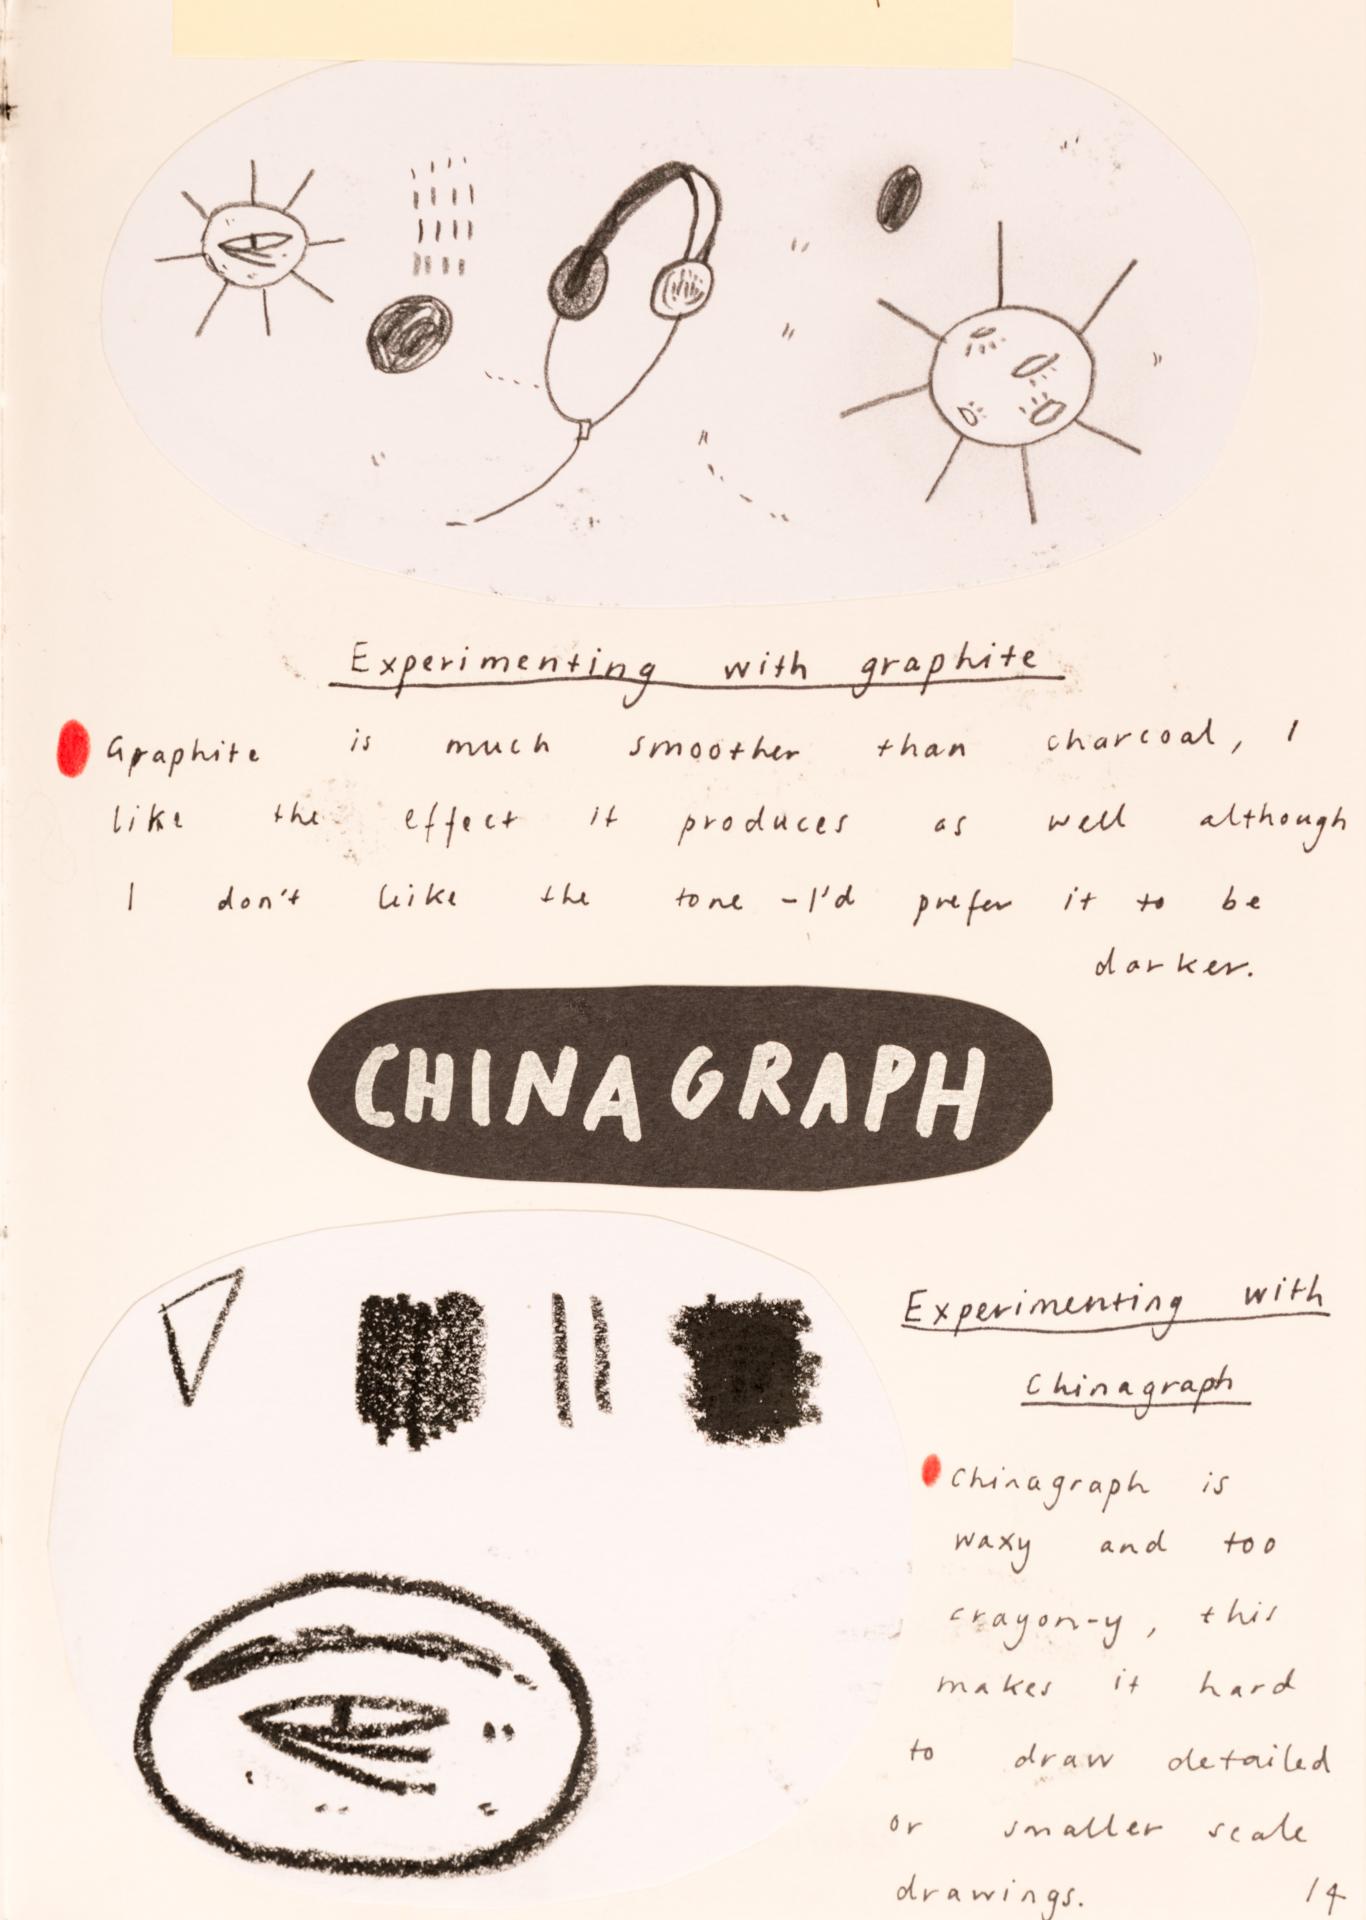 Experimenting with graphite
Graphite is much smoother than charcoal, I
like the effect it produces as well although
I don't like the tone - I'd prefer it to be
darker.
CHINAGRAPH
Experimenting with
Chinagraph
Chinagraph is
waxy and too
crayon-y, this
makes it hard
to draw detailed
or smaller scale
drawings.
14